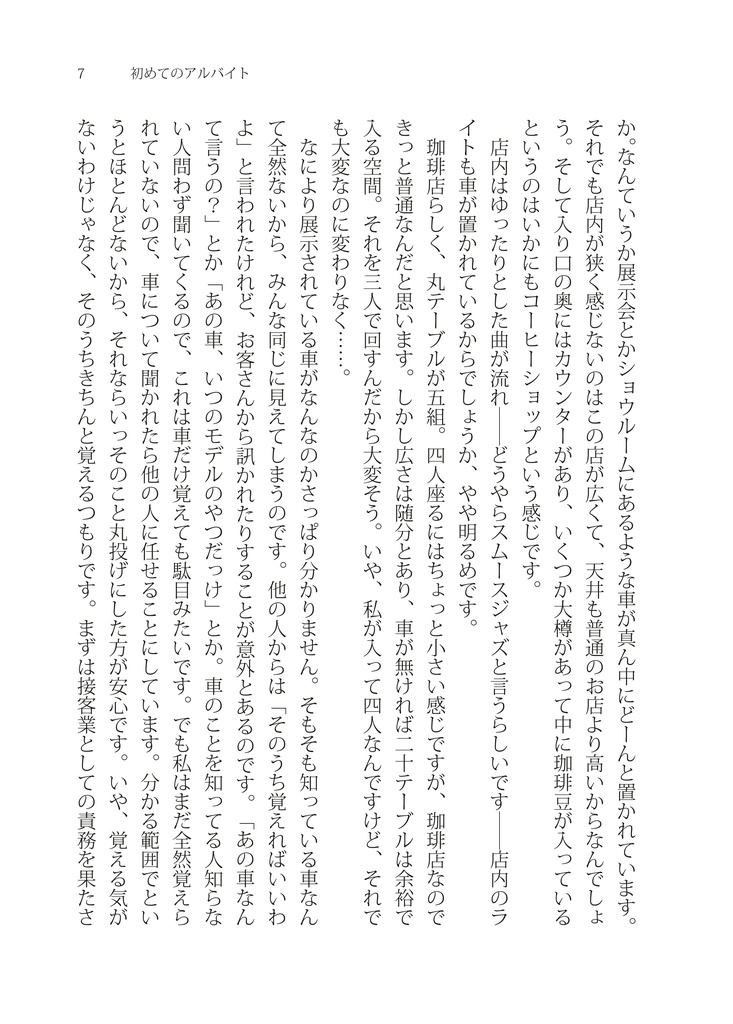 7　初めてのアルバイト
か。なんていうか展示会とかショウルームにあるような車が真ん中にどーんと置かれています。
それでも店内が狭く感じないのはこの店が広くて、天井も普通のお店より高いからなんでしょ
う。そして入り口の奥にはカウンターがあり、いくつか大樽があって中に珈琲豆が入っている
というのはいかにもコーヒーショップという感じです。
　店内はゆったりとした曲が流れ――どうやらスムースジャズと言うらしいです――店内のラ
イトも車が置かれているからでしょうか、やや明るめです。
　珈琲店らしく、丸テーブルが五組。四人座るにはちょっと小さい感じですが、珈琲店なので
きっと普通なんだと思います。しかし広さは随分とあり、車が無ければ二十テーブルは余裕で
入る空間。それを三人で回すんだから大変そう。いや、私が入って四人なんですけど、それで
も大変なのに変わりなく……。
　なにより展示されている車がなんなのかさっぱり分かりません。そもそも知っている車なん
て全然ないから、みんな同じに見えてしまうのです。他の人からは「そのうち覚えればいいわ
よ」と言われたけれど、お客さんから訊かれたりすることが意外とあるのです。「あの車なん
て言うの？」とか「あの車、いつのモデルのやつだっけ」とか。車のことを知ってる人知らな
い人問わず聞いてくるので、これは車だけ覚えても駄目みたいです。でも私はまだ全然覚えら
れていないので、車について聞かれたら他の人に任せることにしています。分かる範囲でとい
うとほとんどないから、それならいっそのこと丸投げにした方が安心です。いや、覚える気が
ないわけじゃなく、そのうちきちんと覚えるつもりです。まずは接客業としての責務を果たさ